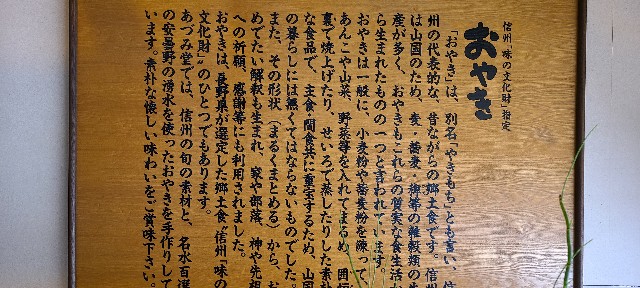 信州「味の文化財」指定
おやき
「おやき」は、別名「やきもち」とも言い、信
州の代表的な、昔ながらの郷土食です。信州
は山国のため、麦・蕎麦・稗等の雑穀類の生
産が多く、おやきもこれらの質実な食生活か
ら生まれたものの一つと言われています。
おやきは一般に、小麦粉や蕎麦粉を練って
あんこや山菜、野菜等を入れてまるめ、囲炉
裏で焼上げたり、せいろで蒸したりした素朴
な食品で、主食・間食共に重宝するため、山国
の暮らしには無くてはならないものでした。
また、その形状(まるくまとめる)から、お
めでたい解釈も生まれ、家や部落、神や先祖
への祈願、感謝等にも利用されました。
おやきは、長野県が選定した郷土食“信州「味の
文化財」”のひとつでもあります。
あづみ堂では、信州の旬の素材と、名水百選
の安曇野の湧水を使ったおやきを手作りして
います。素朴な懐しい味わいをご賞味下さい。